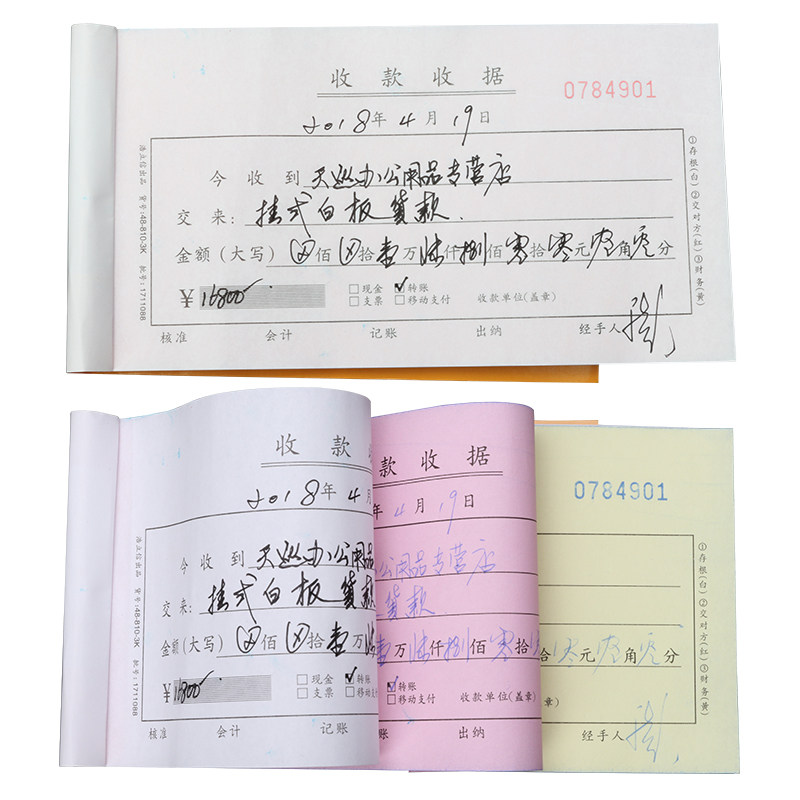 收款收据
0784901
2018年4月19日
今收到 天巡办公用品专营店
交来: 挂式白板货款.
金额(大写) ⊗佰⊗拾壹万陆仟捌佰零拾零元零角零分
¥ 16800
□现金 ☑转账
□支票 □移动支付 收款单位(盖章)
核准 会计 记账 出纳 经手人
浩立信出品 货号:48-810-3K 批号:1711088
①存根(白)②交对方(红)③财务(黄)
收款 款收据
0784901
2018年4月 年4月19日
今收到 天巡办公用品 公用品专营店
交来: 挂式白板货款 货款
金额(大写) ⊗佰⊗拾壹万陆 万陆仟捌佰零拾 拾零元零角零分
¥ 16800
□现金 ☑转账 ☑转账
□支票 □移动支付 □移动支付 收款单位(盖章) 章)
核准 会计 记账 出纳 经手人
浩立信出品 货号:48-810-3K 批号:1711088
①存根(白)②交对方(红)③财务(黄)